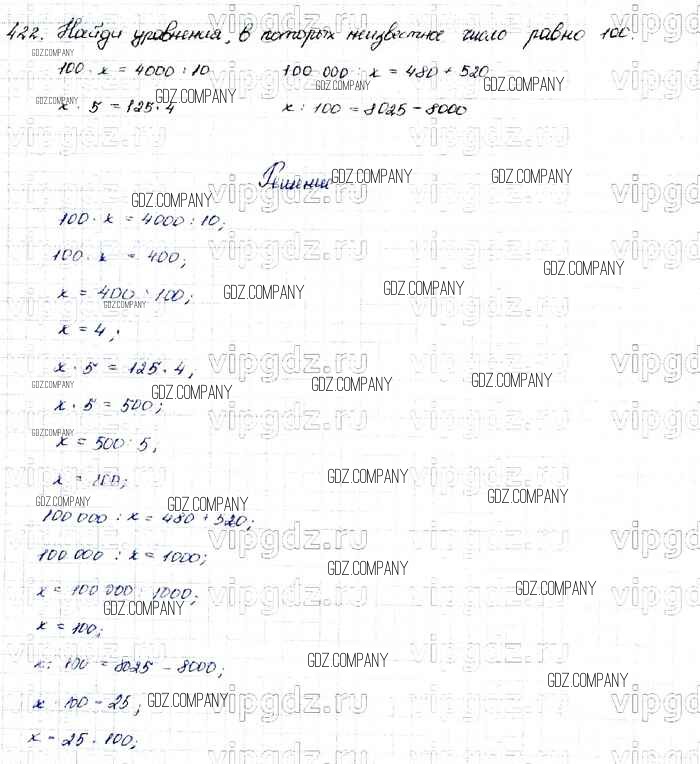 422. Найди уравнения, в которых неизвестное число равно 100.
100 · x = 4000 : 10 100 000 : x = 480 + 520
x · 5 = 125 · 4 x : 100 = 8025 - 8000
Решение
100 · x = 4000 : 10;
100 · x = 400;
x = 400 : 100;
x = 4;
x · 5 = 125 · 4;
x · 5 = 500;
x = 500 : 5;
x = 100;
100 000 : x = 480 + 520;
100 000 : x = 1000;
x = 100 000 : 1000;
x = 100;
x : 100 = 8025 - 8000;
x : 100 = 25;
x = 25 · 100;
GDZ.COMPANY
vipgdz.ru